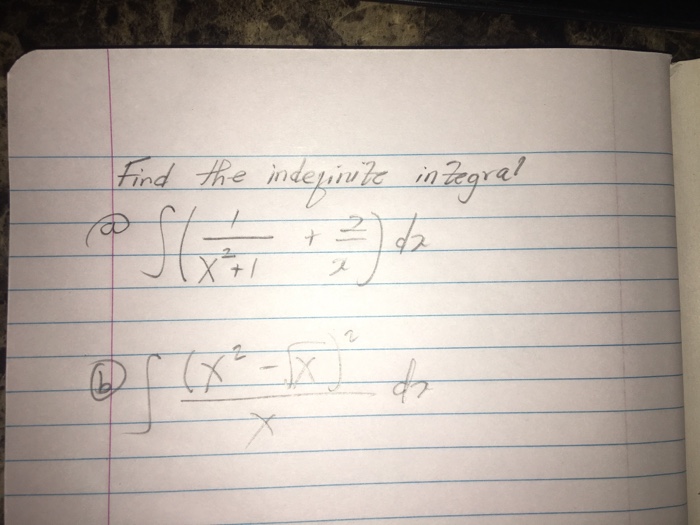 Find the indefinite integral
(a) ∫(1/(x²+1) + 2/x) dx
(b) ∫ (x² - √x)²/x dx